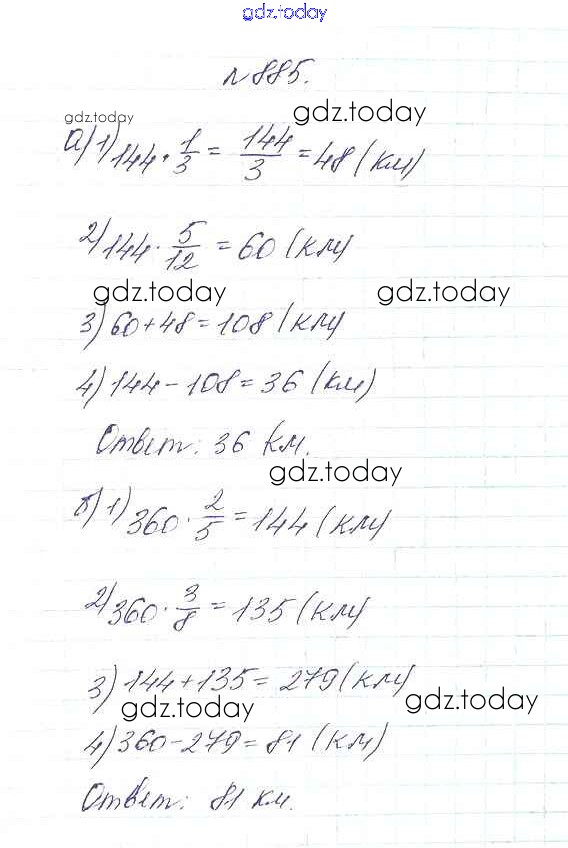 gdz.today
№885.
gdz.today
gdz.today
а) 1) 144 · 1/3 = 144/3 = 48 (км)
2) 144 · 5/12 = 60 (км)
gdz.today gdz.today
3) 60 + 48 = 108 (км)
4) 144 - 108 = 36 (км)
Ответ: 36 км.
gdz.today
б) 1) 360 · 2/5 = 144 (км)
2) 360 · 3/8 = 135 (км)
3) 144 + 135 = 279 (км)
gdz.today gdz.today
4) 360 - 279 = 81 (км)
Ответ: 81 км.
gdz.today gdz.today